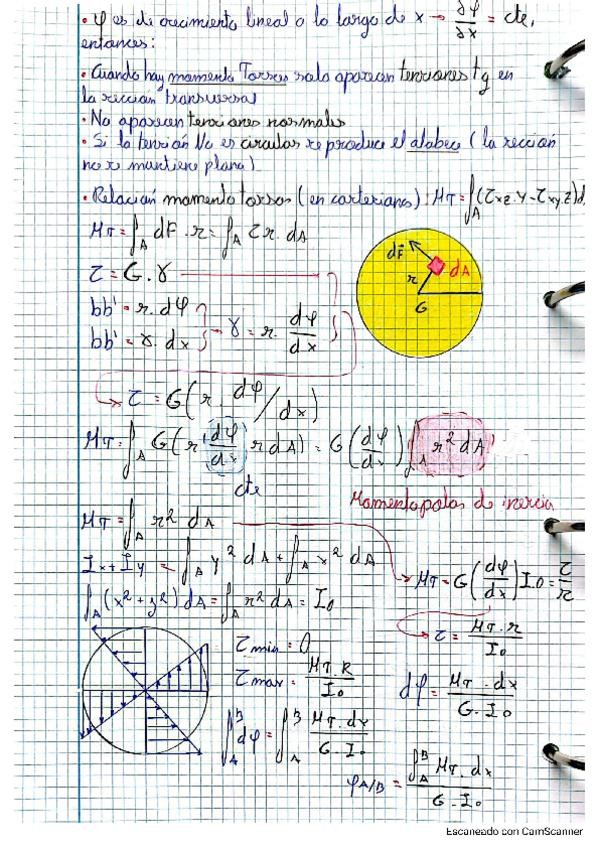 • φ es de crecimiento lineal a lo largo de x → ∂φ/∂x = cte,
entonces:
• Cuando hay momento Torsor solo aparecen tensiones tg en
la sección transversal
• No aparecen tensiones normales
• Si la tensión No es circular se produce el alabeo (la sección
no se mantiene plana)
• Relación momento torsor (en cartesiano): Mτ = ∫A (τxz·y - τxy·z)d
Mτ = ∫A dF · r = ∫A τr · dA
τ = G · γ
bb' = r · dφ
bb' = γ · dx
→ γ = r · dφ/dx
dF
dA
r
G
τ = G(r · dφ/dx)
Mτ = ∫A G(r dφ/dx r dA) = G(dφ/dx) ∫A r² dA
cte
Momento polar de inercia
Mτ = ∫A r² dA
Ix + Iy = ∫A y² dA + ∫A x² dA
→ Mτ = G(dφ/dx) I0 = τ/r
∫A (x² + y²) dA = ∫A r² dA = I0
τ = Mτ · r / I0
τmin = 0
τmax = Mτ · R / I0
dφ = Mτ · dx / G · I0
∫A^B dφ = ∫A^B Mτ · dx / G · I0
φA/B = ∫A^B Mτ · dx / G · I0
Escaneado con CamScanner